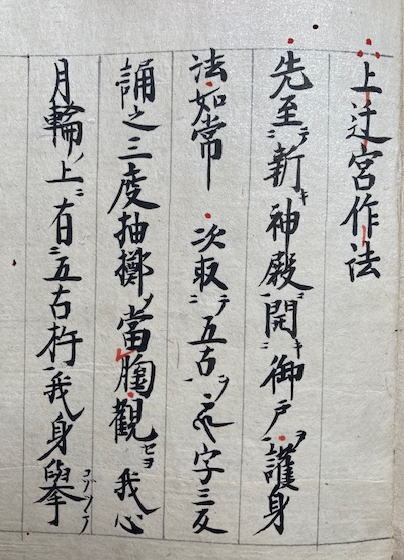 上迁宮作法
先至テ新キ神殿ニ開キ御戸ヲ護身
法如常 次取テ五古ヲ字三反
誦之三度抽擲ソ當胸觀セヨ我心
月輪ノ上ニ有五古杵我身擧コゾツテ